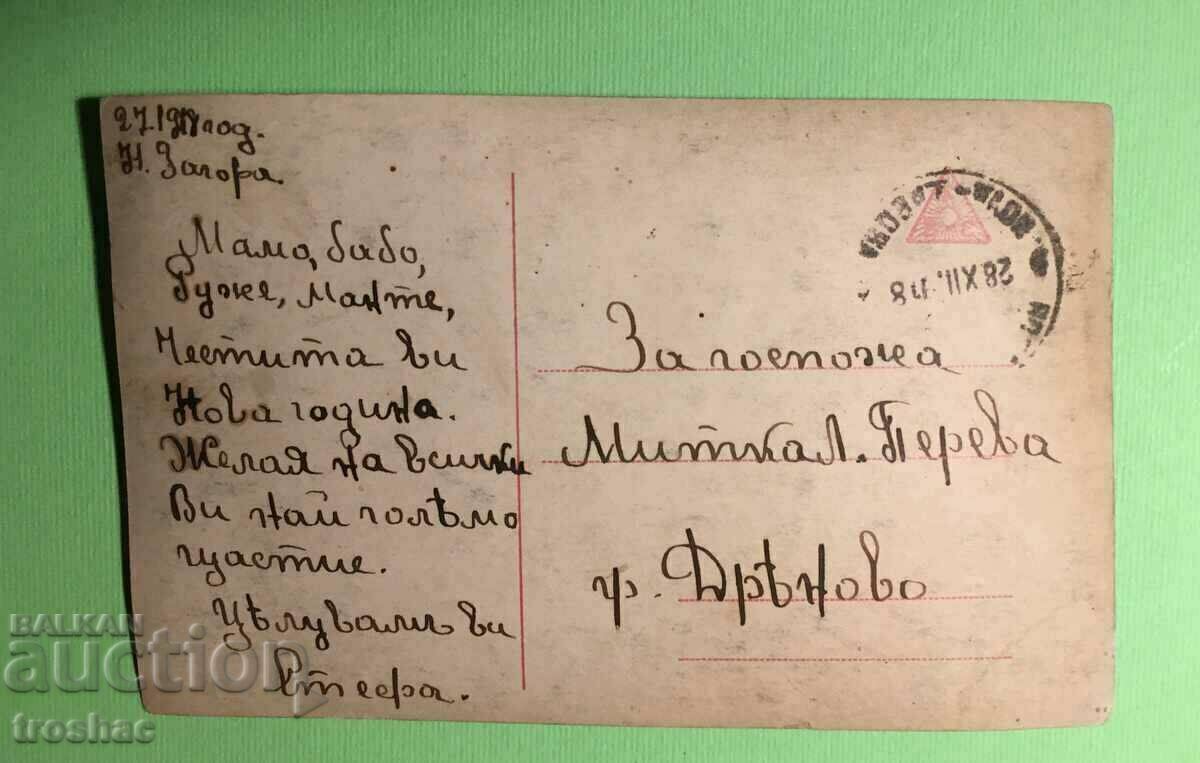 27.1918 год.
Н. Загора
Мамо, бабо,
Руже, Манте,
Честита ви
Нова година.
Желая на всички
Ви най голѣмо
щастие.
Цѣлувамъ ви
Стефа.
28 XII. 918
За госпожа
Митка Л. Перева
гр. Дрѣново
BALKAN
auction
troshac